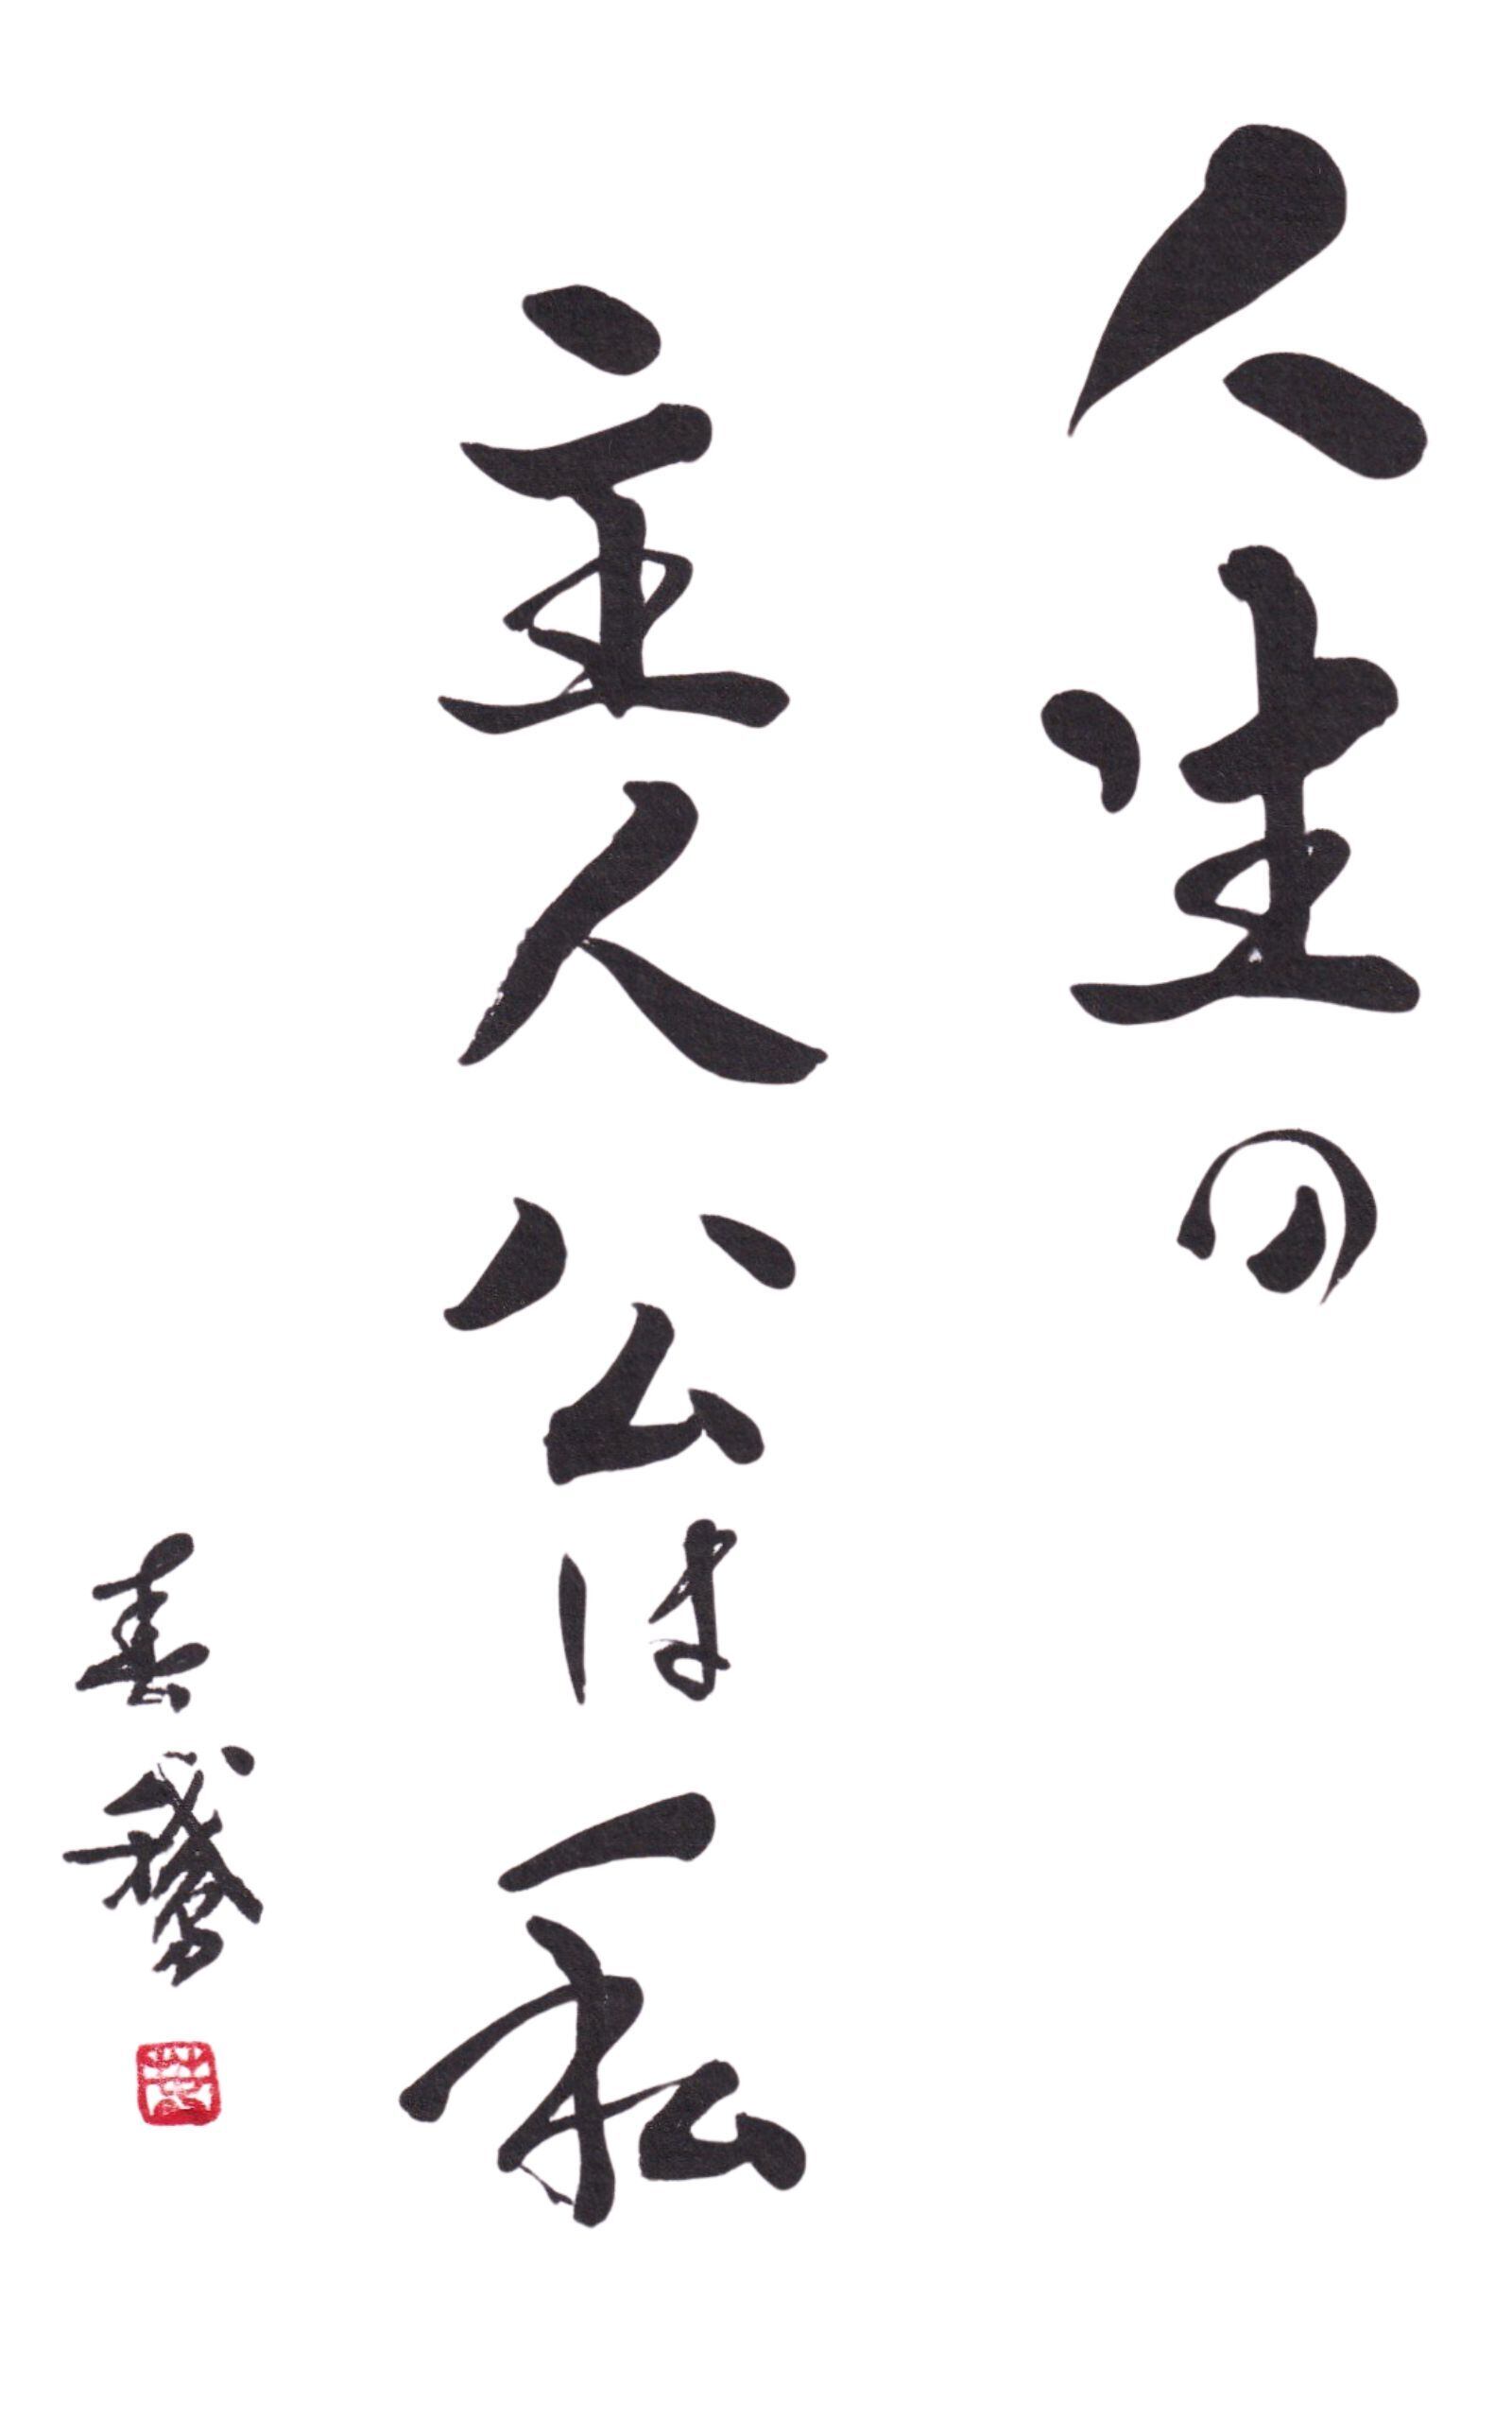 人生の
主人公は私
春鵞